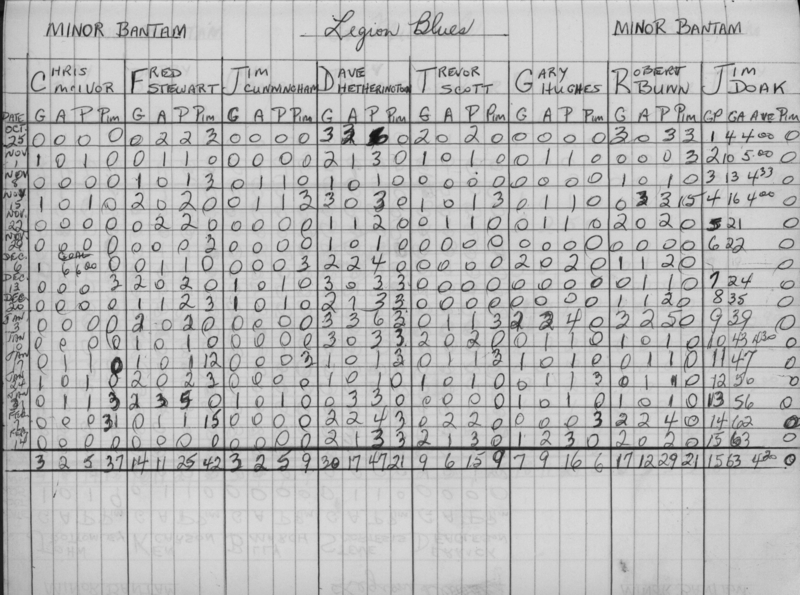 MINOR BANTAM Legion Blues MINOR BANTAM
CHRIS FRED JIM DAVE TREVOR GARY ROBERT JIM
MCIVOR STEWART CUNNINGHAM HETHERINGTON SCOTT HUGHES BUNN DOAK
DATE G A P Pim G A P Pim G A P Pim G A P Pim G A P Pim G A P Pim G A P Pim GP GA AVE Pim
OCT. 25 0 0 0 0 0 2 2 3 0 0 0 0 3 0 2 0 2 0 0 0 0 0 3 0 3 3 1 4 4.00
NOV 1 1 0 1 0 0 1 1 0 0 0 0 0 2 1 3 0 1 0 1 0 0 1 1 0 0 0 0 3 2 10 5.00
NOV 0 0 0 0 1 0 1 3 0 1 1 0 1 0 1 0 0 0 0 0 0 0 0 0 1 0 1 0 3 13 4.33
NOV 15 1 0 1 0 2 0 2 0 0 1 1 3 3 0 3 0 1 0 1 3 0 1 1 0 0 3 3 15 4 16 4.00
NOV. 22 0 0 0 0 0 2 2 0 0 0 0 0 1 1 2 0 0 1 1 0 0 1 1 0 2 0 2 0 5 21
NOV. 0 0 0 0 0 0 0 3 0 0 0 0 1 0 1 0 0 0 0 0 0 0 0 0 0 0 0 0 6 22
DEC. 6 1 GOAL 6 6.00 0 0 1 1 0 0 0 0 3 2 2 4 0 0 0 0 0 2 0 2 0 1 1 2 0
DEC. 13 0 0 0 3 2 0 2 0 1 0 1 0 3 0 3 3 0 0 0 0 0 0 0 0 0 1 1 0 7 24
DEC. 20 0 0 0 0 1 1 2 3 1 0 1 0 2 1 3 3 0 0 0 0 0 0 0 0 1 1 2 0 8 35
JAN 3 0 0 0 0 2 0 2 0 0 0 0 0 3 3 6 3 0 1 1 3 2 2 4 0 3 2 5 0 9 39
JAN 10 0 0 0 0 1 0 1 0 0 0 0 0 3 0 3 3 2 0 2 0 0 1 1 0 1 0 1 0 10 43 4.30
JAN 0 1 1 0 1 0 1 12 0 0 0 3 1 0 1 3 0 1 1 3 1 0 1 0 0 1 1 0 11 47
JAN 1 0 1 0 2 0 2 3 0 0 0 0 1 0 1 0 1 0 1 0 0 1 1 3 0 1 1 0 12 50
JAN 31 0 1 1 3 2 3 5 0 1 0 1 0 0 3 3 0 0 0 0 0 1 0 1 0 1 0 1 0 13 56
FEB. 7 0 0 0 31 0 1 1 15 0 0 0 0 2 2 4 3 0 2 2 0 0 0 0 3 2 2 4 0 14 62 0
FEB. 14 0 0 0 0 0 0 0 0 0 0 0 0 2 1 3 3 2 1 3 0 1 2 3 0 2 0 2 0 15 63 0
3 2 5 37 14 11 25 42 3 2 5 9 30 17 47 21 9 6 15 9 7 9 16 6 17 12 29 21 15 63 4.20 0